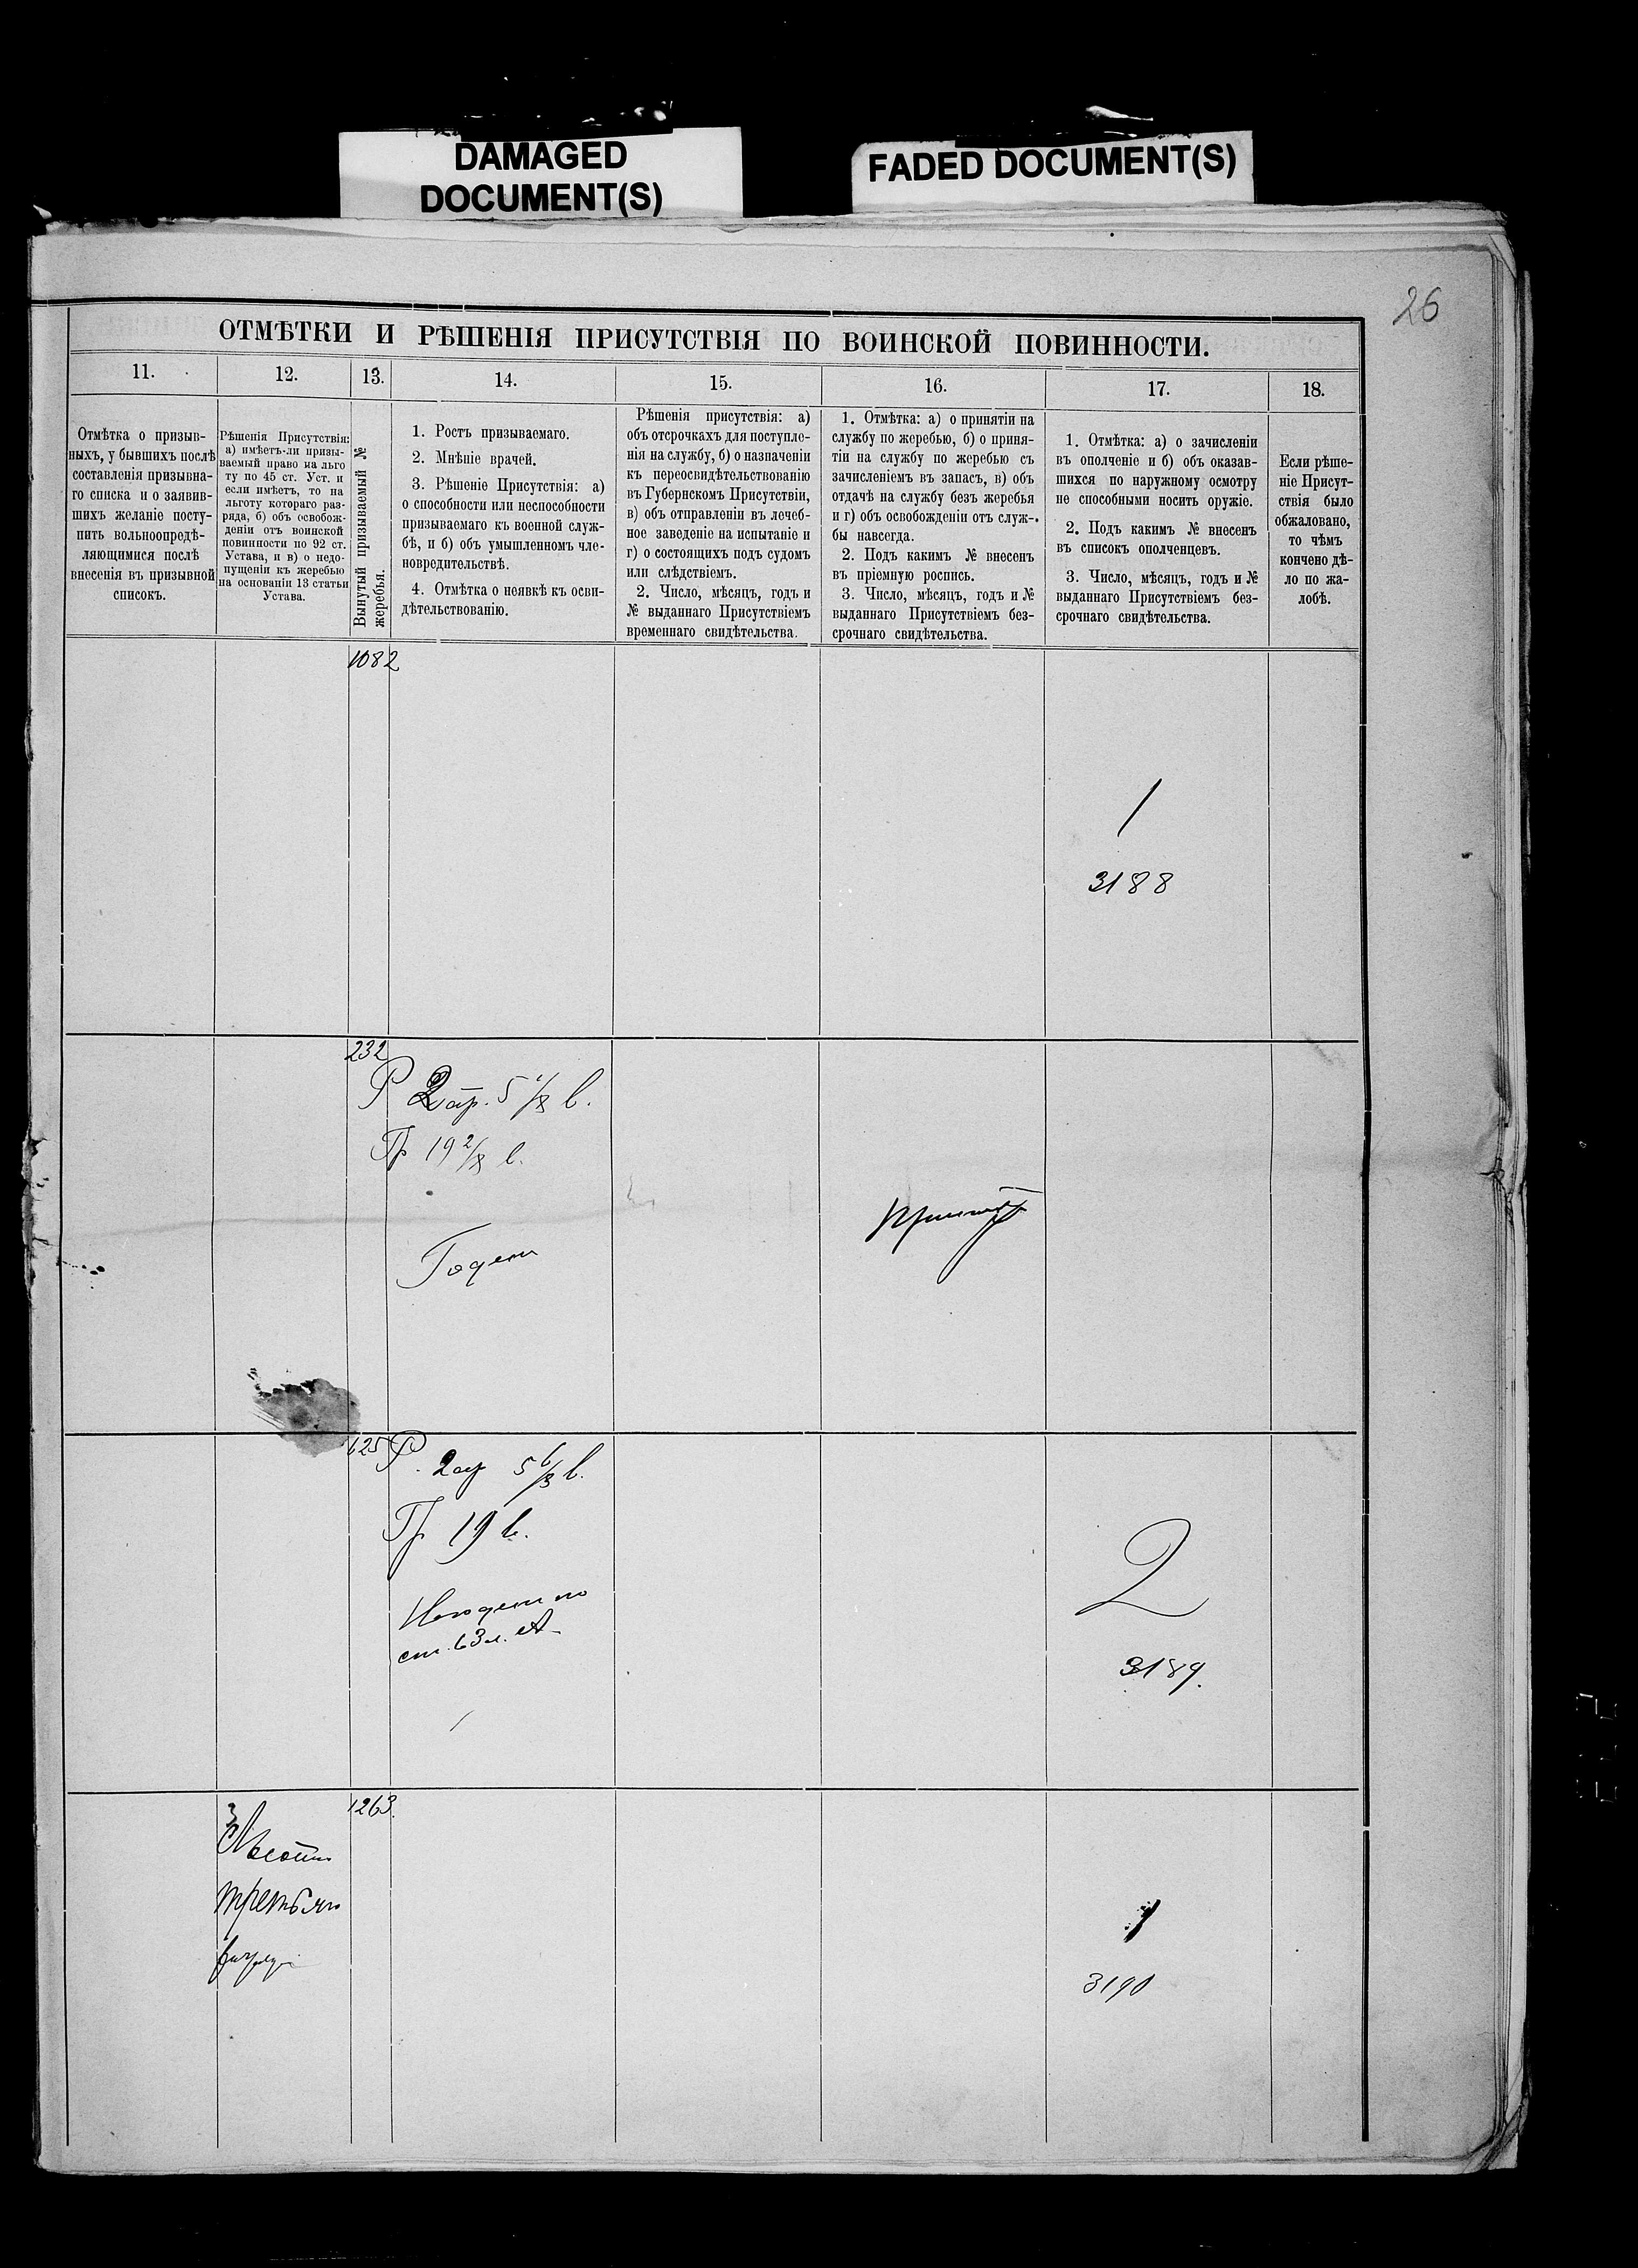 DAMAGED
DOCUMENT(S)
FADED DOCUMENT(S)
26
ОТМѢТКИ И РѢШЕНІЯ ПРИСУТСТВІЯ ПО ВОИНСКОЙ ПОВИННОСТИ.
11.
12.
13.
14.
15.
16.
17.
18.
Отмѣтка о призыв-
ныхъ, у бывшихъ послѣ
составленія призывна-
го списка и о заявив-
шихъ желаніе посту-
пить вольноопредѣ-
ляющимися послѣ
внесенія въ призывной
списокъ.
Рѣшенія Присутствія:
а) имѣетъ-ли призы-
ваемый право на льго
ту по 45 ст. Уст. и
если имѣетъ, то на
льготу котораго раз-
ряда, б) объ освобож-
деніи отъ воинской
повинности по 92 ст.
Устава, и в) о недо-
пущеніи къ жеребью
на основаніи 13 статьи
Устава.
Вынутый призываемый №
жеребья.
1. Ростъ призываемаго.
2. Мнѣніе врачей.
3. Рѣшеніе Присутствія: а)
о способности или неспособности
призываемаго къ военной служ-
бѣ, и б) объ умышленномъ чле-
новредительствѣ.
4. Отмѣтка о неявкѣ къ осви-
дѣтельствованію.
Рѣшенія присутствія: а)
объ отсрочкахъ для поступле-
нія на службу, б) о назначеніи
къ переосвидѣтельствованію
въ Губернскомъ Присутствіи,
в) объ отправленіи въ лечеб-
ное заведеніе на испытаніе и
г) о состоящихъ подъ судомъ
или слѣдствіемъ.
2. Число, мѣсяцъ, годъ и
№ выданнаго Присутствіемъ
временнаго свидѣтельства.
1. Отмѣтка: а) о принятіи на
службу по жеребью, б) о приня-
тіи на службу по жеребью съ
зачисленіемъ въ запасъ, в) объ
отдачѣ на службу безъ жеребья
и г) объ освобожденіи отъ служ-
бы навсегда.
2. Подъ какимъ № внесенъ
въ пріемную роспись.
3. Число, мѣсяцъ, годъ и №
выданнаго Присутствіемъ без-
срочнаго свидѣтельства.
1. Отмѣтка: а) о зачисленіи
въ ополченіе и б) объ оказав-
шихся по наружному осмотру
не способными носить оружіе.
2. Подъ какимъ № внесенъ
въ списокъ ополченцевъ.
3. Число, мѣсяцъ, годъ и №
выданнаго Присутствіемъ без-
срочнаго свидѣтельства.
Если рѣше-
ніе Присут-
ствія было
обжаловано,
то чѣмъ
кончено дѣ-
ло по жа-
лобѣ.
1082
1
3188
232
Р 2 ар. 5 1/8 в.
Гр 19 2/8 в.
Годен
Принят
625
Р. 2 ар 5 6/8 в.
Гр 19 в.
Негоден по
ст. 63 л. А
2
3189.
1263.
Льготы
третьяго
разряда
1
3190